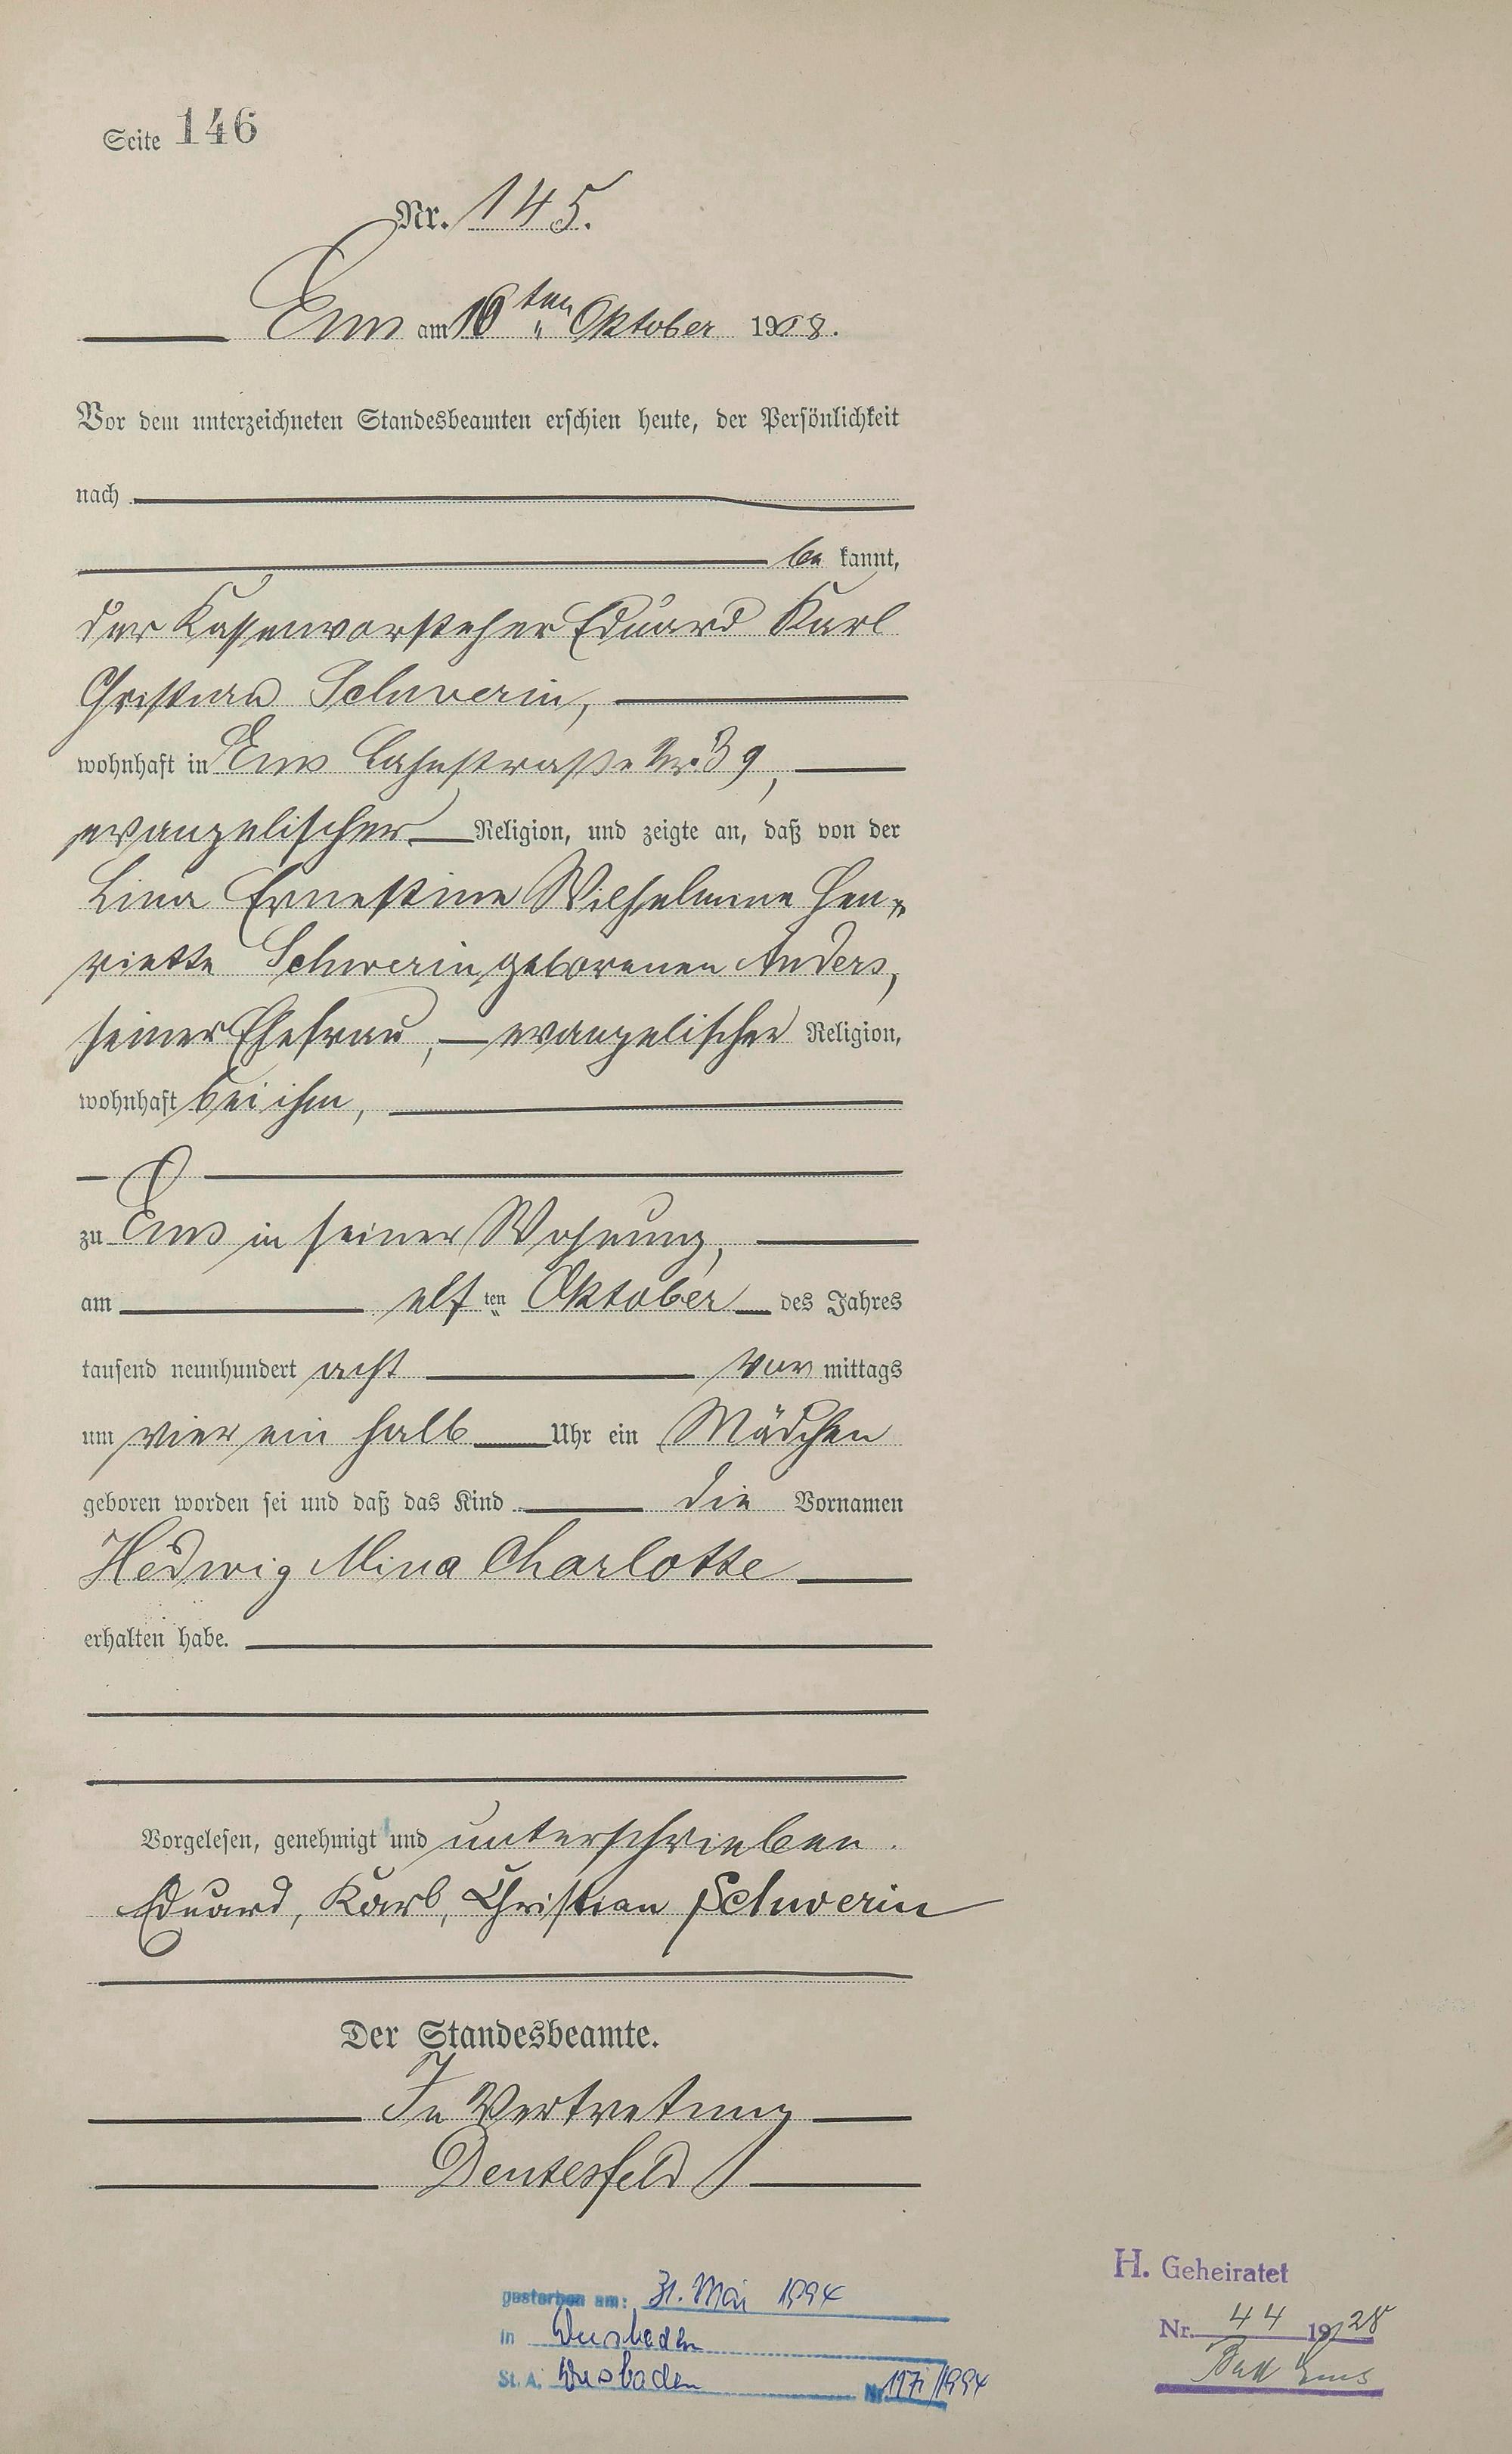 Seite 146
Nr. 145.
Ems am 16ten Oktober 1908.
Vor dem unterzeichneten Standesbeamten erschien heute, der Persönlichkeit
nach
be kannt,
der Kassenvorsteher Eduard Karl
Christian Schwerin,
wohnhaft in Ems Lahnstraße Nr. 39,
evangelischer Religion, und zeigte an, daß von der
Lina Ernestine Wilhelmine Hen-
riette Schwerin geborenen Anders,
seiner Ehefrau, evangelischer Religion,
wohnhaft bei ihm,
zu Ems in seiner Wohnung,
am elf ten Oktober des Jahres
tausend neunhundert acht vor mittags
um vier ein halb Uhr ein Mädchen
geboren worden sei und daß das Kind die Vornamen
Hedwig Mina Charlotte
erhalten habe.
Vorgelesen, genehmigt und unterschrieben.
Eduard, Karl, Christian Schwerin
Der Standesbeamte.
In Vertretung
Dentesfeld
gestorben am: 31. Mai 1994
in Wiesbaden
St. A. Wiesbaden Nr. /1994
H. Geheiratet
Nr. 44 1928
Bad Ems